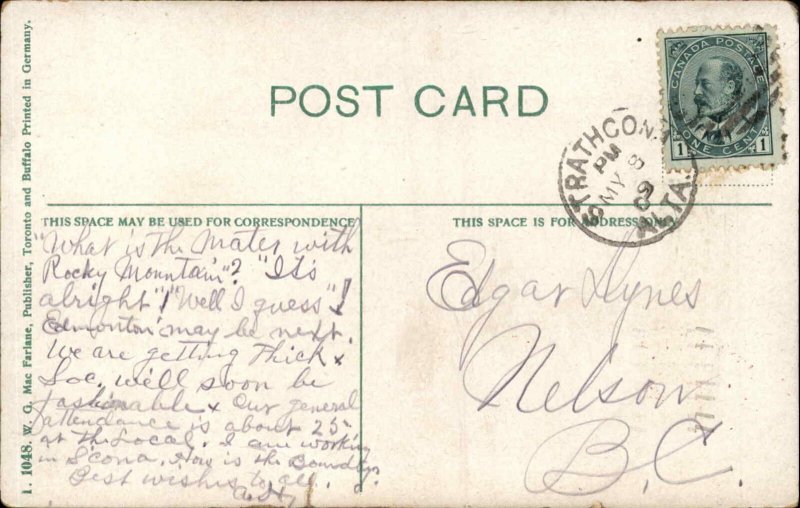 POST CARD
CANADA POSTAGE
1 ONE CENT 1
STRATHCONA
PM
8
MY 8
09
ALTA.
THIS SPACE MAY BE USED FOR CORRESPONDENCE
THIS SPACE IS FOR ADDRESS ONLY
"What is the mater with
Rocky Mountain"? "It's
alright"! "Well I guess"!
Edmonton may be next.
We are getting thick &
Soc. will soon be
fashionable & Our general
attendance is about 25
at the Local. I am working
in Scona. How is the Boundry.
Best wishes to all.
Edgar Dynes
Nelson
B.C.
1. 1048. W. G. Mac Farlane, Publisher, Toronto and Buffalo Printed in Germany.